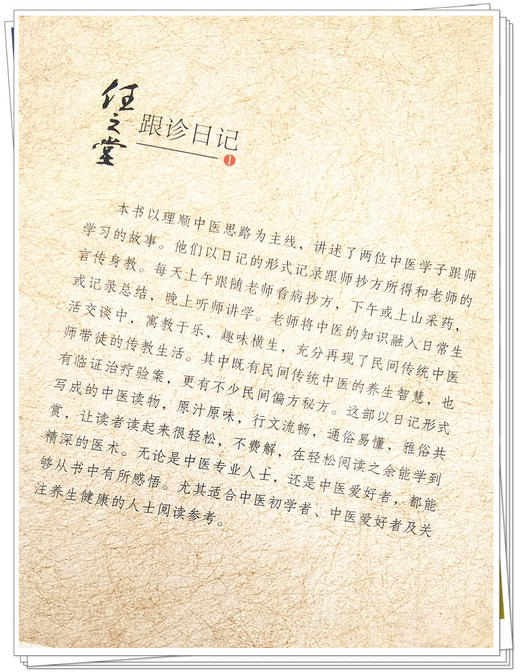 任之堂
跟诊日记
1
本书以理顺中医思路为主线，讲述了两位中医学子跟师
学习的故事。他们以日记的形式记录跟师抄方所得和老师的
言传身教。每天上午跟随老师看病抄方，下午或上山采药，
或记录总结，晚上听师讲学。老师将中医的知识融入日常生
活交谈中，寓教于乐，趣味横生，充分再现了民间传统中医
师带徒的传教生活。其中既有民间传统中医的养生智慧，也
有临证治疗验案，更有不少民间偏方秘方。这部以日记形式
写成的中医读物，原汁原味，行文流畅，通俗易懂，雅俗共
赏，让读者读起来很轻松，不费解，在轻松阅读之余能学到
精深的医术。无论是中医专业人士，还是中医爱好者，都能
够从书中有所感悟。尤其适合中医初学者、中医爱好者及关
注养生健康的人士阅读参考。